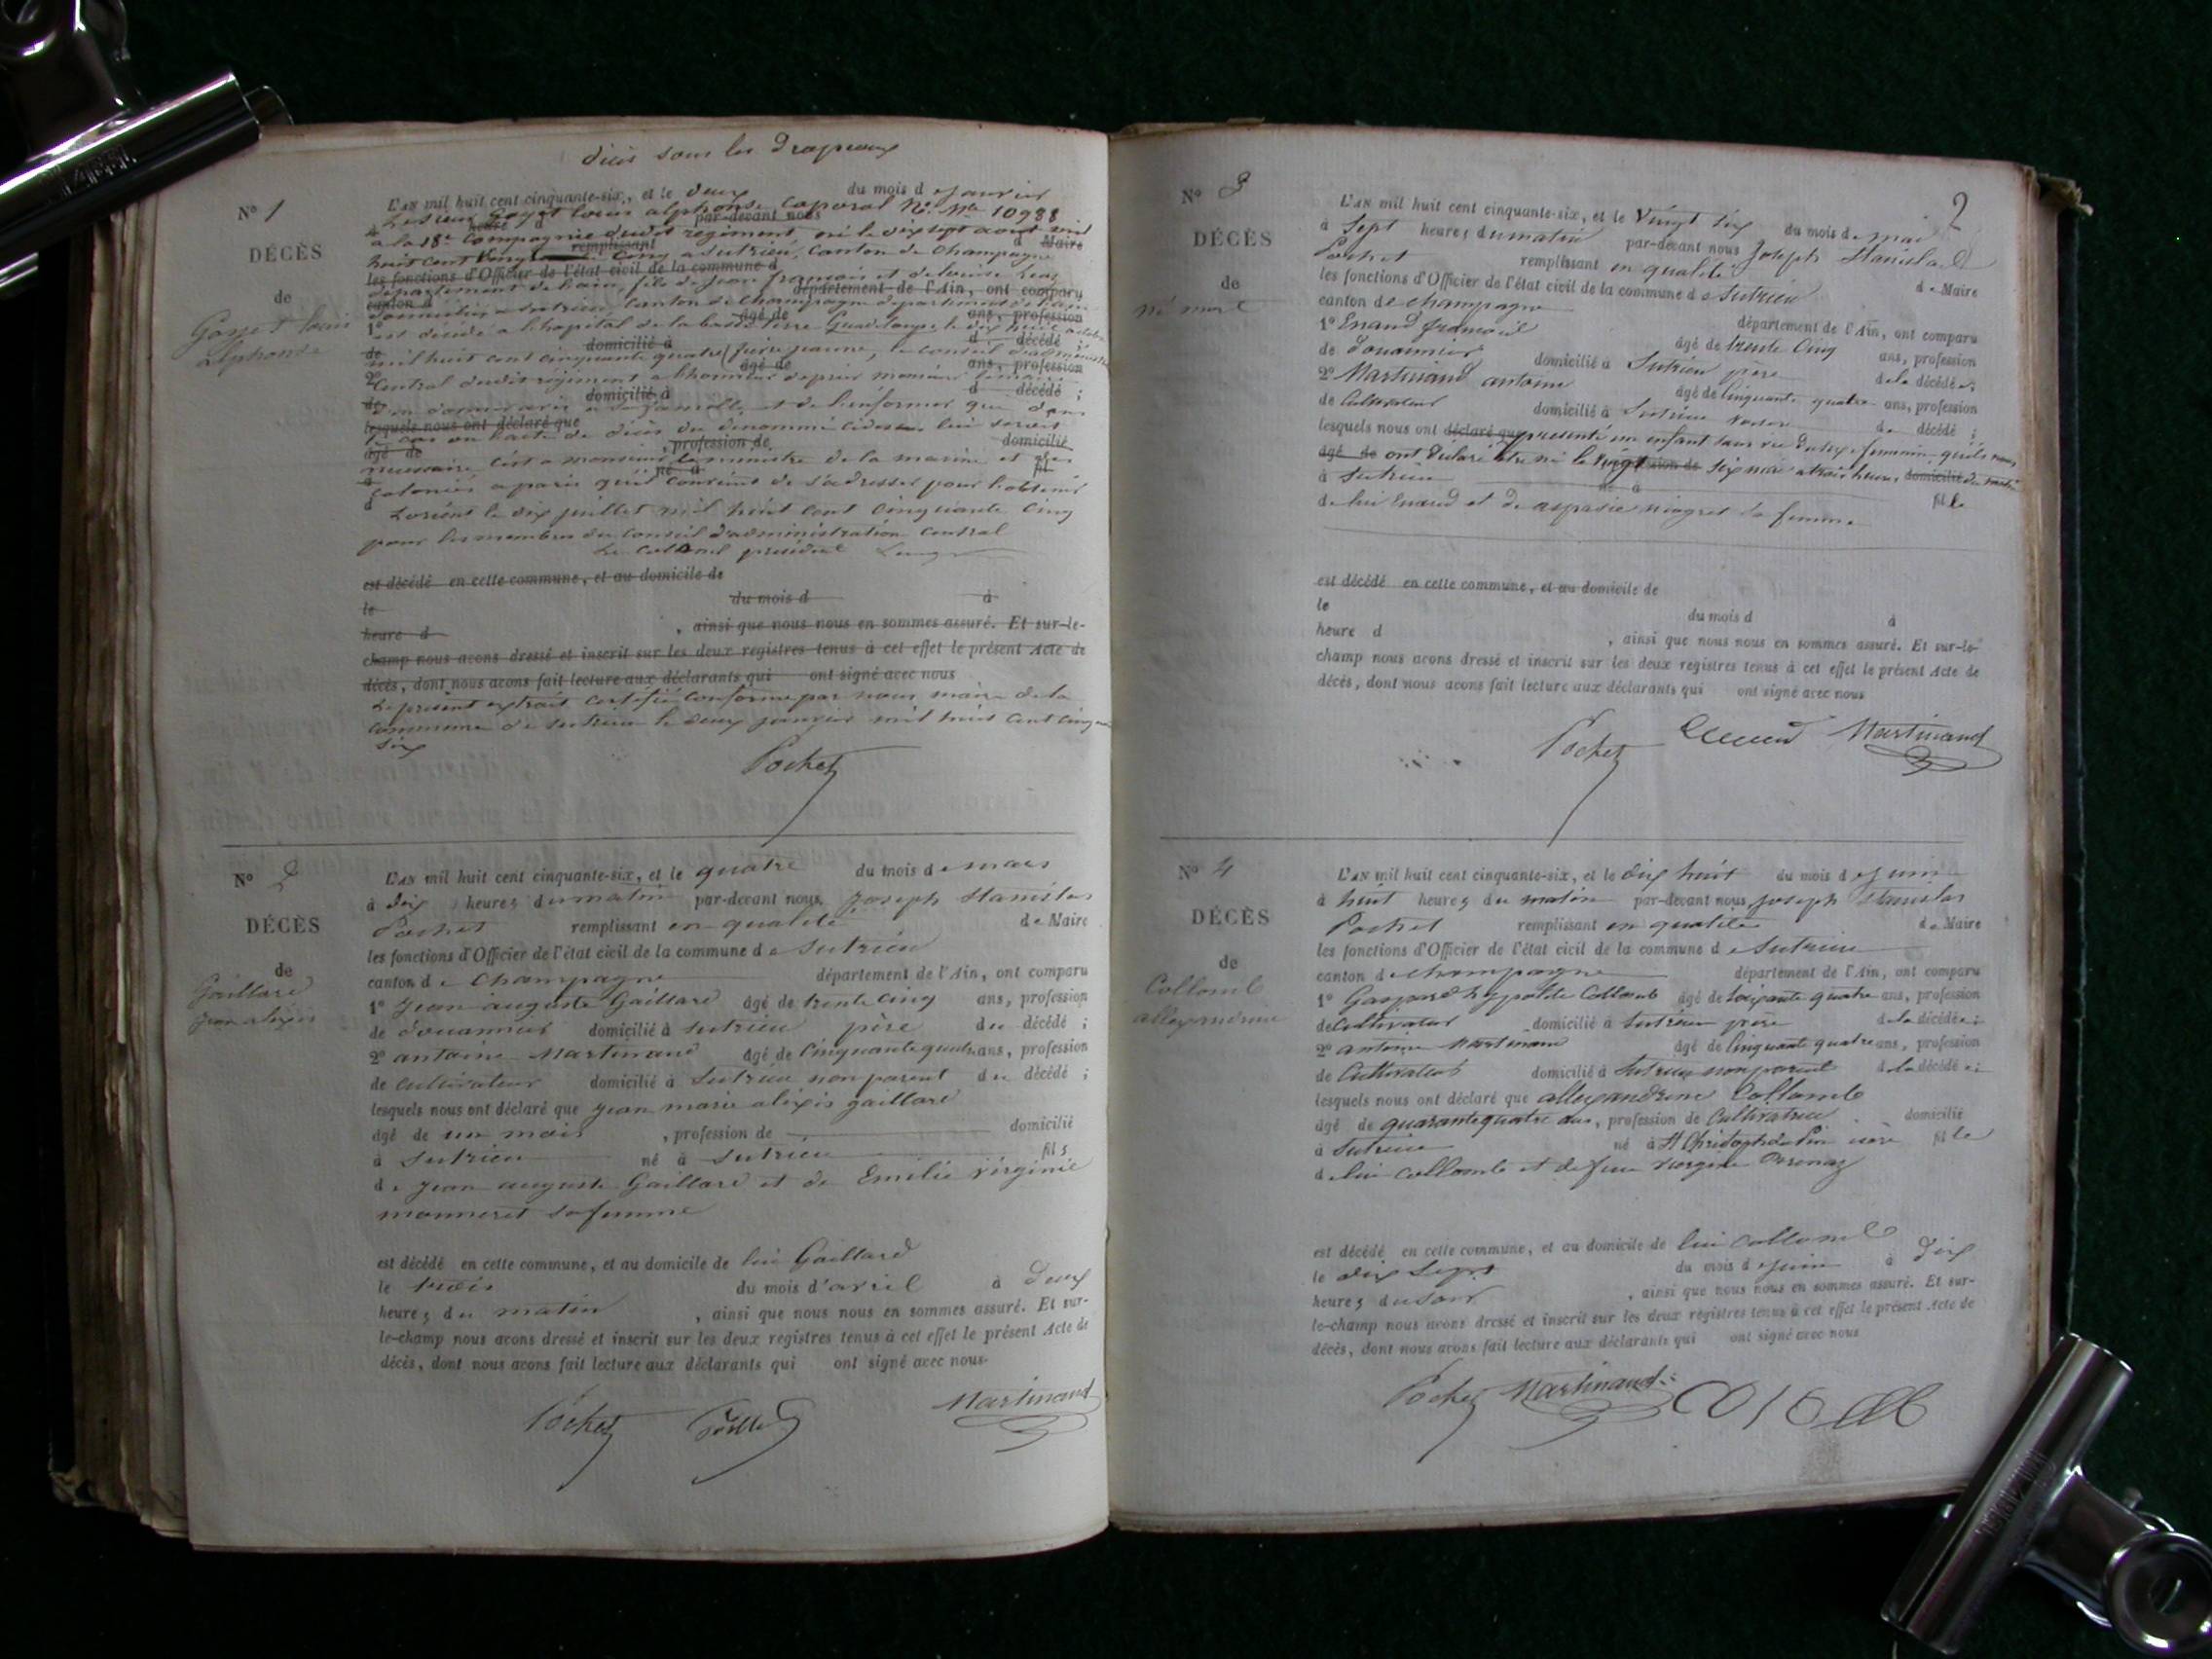 décès sous les Drapeaux
N° 1
DÉCÈS
de
Goyet louis
alphonse
L'AN mil huit cent cinquante-six, et le deux du mois d e janvier
Le sieur Goyet louis alphonse caporal N° Mle 10988
heure d par-devant nous
à la 18e Compagnie dudit régiment né le dix sept août mil
remplissant d Maire
huit cent vingt cinq a Sutrieu, Canton de Champagne
les fonctions d'Officier de l'état civil de la commune d
département de l'ain, fils de jean françois et de louise
canton d département de l'Ain, ont comparu
domicilié a Sutrieu, Canton de Champagne département de l'ain
1° âgé de ans, profession
est décédé a l'hopital de la basse terre Guadeloupe le dix huit octobre
de domicilié à d décédé ;
mil huit cent cinquante quatre (fièvre jaune, le Conseil d'administration
2° âgé de ans, profession
Central dudit régiment a l'honneur de prier monsieur le maire
de domicilié à d décédé ;
d'en donner avis a sa famille, et de l'informer que dans
lesquels nous ont déclaré que
le cas ou l'acte de décès du dénommé cidessus lui serait
âgé de , profession de domicilié
nécessaire c'est a monsieur le ministre de la marine et des
à né à fil
colonies a paris qu'il convient de s'adresser pour l'obtenir
d
Lorient le dix juillet mil huit cent cinquante cinq
pour les membres du Conseil d'administration Central
Le Colonel président
est décédé en cette commune, et au domicile de
le du mois d à
heure d , ainsi que nous nous en sommes assuré. Et sur-le-
champ nous avons dressé et inscrit sur les deux registres tenus à cet effet le présent Acte de
décès, dont nous avons fait lecture aux déclarants qui ont signé avec nous
Le présent extrait certifié conforme par nous maire de la
commune de Sutrieu le deux janvier mil huit cent cinquante
six
Pochet
N° 2
DÉCÈS
de
Gaillard
jean alexis
L'AN mil huit cent cinquante-six, et le quatre du mois d e mars
à dix heures du matin par-devant nous, Joseph Stanislas
Pochet remplissant en qualité de Maire
les fonctions d'Officier de l'état civil de la commune d e Sutrieu
canton d e Champagne département de l'Ain, ont comparu
1° Jean auguste Gaillard âgé de trente cinq ans, profession
de douannier domicilié à Sutrieu père du décédé ;
2° antoine Martinand âgé de Cinquante quatre ans, profession
de cultivateur domicilié à Sutrieu non parent du décédé ;
lesquels nous ont déclaré que jean marie alexis gaillard
âgé de un mois , profession de domicilié
à Sutrieu né à Sutrieu fils
de jean auguste Gaillard et de Emilie Virginie
monneret sa femme
est décédé en cette commune, et au domicile de lui Gaillard
le trois du mois d'avril à Deux
heures du matin , ainsi que nous nous en sommes assuré. Et sur-
le-champ nous avons dressé et inscrit sur les deux registres tenus à cet effet le présent Acte de
décès, dont nous avons fait lecture aux déclarants qui ont signé avec nous
Pochet Martinand
2
N° 3
DÉCÈS
de
né mort
L'AN mil huit cent cinquante-six, et le Vingt six du mois de mai
à Sept heures du matin par-devant nous Joseph Stanislas
Pochet remplissant en qualité de Maire
les fonctions d'Officier de l'état civil de la commune d e Sutrieu
canton de Champagne département de l'Ain, ont comparu
1° Enand françois âgé de trente Cinq ans, profession
de Douannier domicilié à Sutrieu père de la décédée ;
2° Martinand antoine âgé de Cinquante quatre ans, profession
de Cultivateur domicilié à Sutrieu voisin de décédé ;
lesquels nous ont déclaré que présenté un enfant sans vie du sexe féminin qu'ils nous
âgé de ont déclaré être né le vingt six mai a trois heures domicilié du matin
à Sutrieu né à fille
de lui Enand et de aspasie sa femme
est décédé en cette commune, et au domicile de
le du mois d à
heure d , ainsi que nous nous en sommes assuré. Et sur-le-
champ nous avons dressé et inscrit sur les deux registres tenus à cet effet le présent Acte de
décès, dont nous avons fait lecture aux déclarants qui ont signé avec nous
Pochet Martinand
N° 4
DÉCÈS
de
Collomb
allexandrine
L'AN mil huit cent cinquante-six, et le dix huit du mois de juin
à huit heures du matin par-devant nous joseph Stanislas
Pochet remplissant en qualité de Maire
les fonctions d'Officier de l'état civil de la commune d e Sutrieu
canton de champagne département de l'Ain, ont comparu
1° Gaspard hypolite Collomb âgé de soixante quatre ans, profession
de Cultivateur domicilié à Sutrieu père de la décédée ;
2° antoine Martinand âgé de Cinquante quatre ans, profession
de Cultivateur domicilié à Sutrieu non parent de la décédée ;
lesquels nous ont déclaré que allexandrine Collomb
âgé de quarante quatre ans, profession de Cultivatrice domicilié
à Sutrieu né à St Christophe isère fille
de lui Collomb et de feue
est décédé en cette commune, et au domicile de lui Collomb
le dix Sept du mois de juin à dix
heures du soir , ainsi que nous nous en sommes assuré. Et sur-
le-champ nous avons dressé et inscrit sur les deux registres tenus à cet effet le présent Acte de
décès, dont nous avons fait lecture aux déclarants qui ont signé avec nous
Pochet Martinand